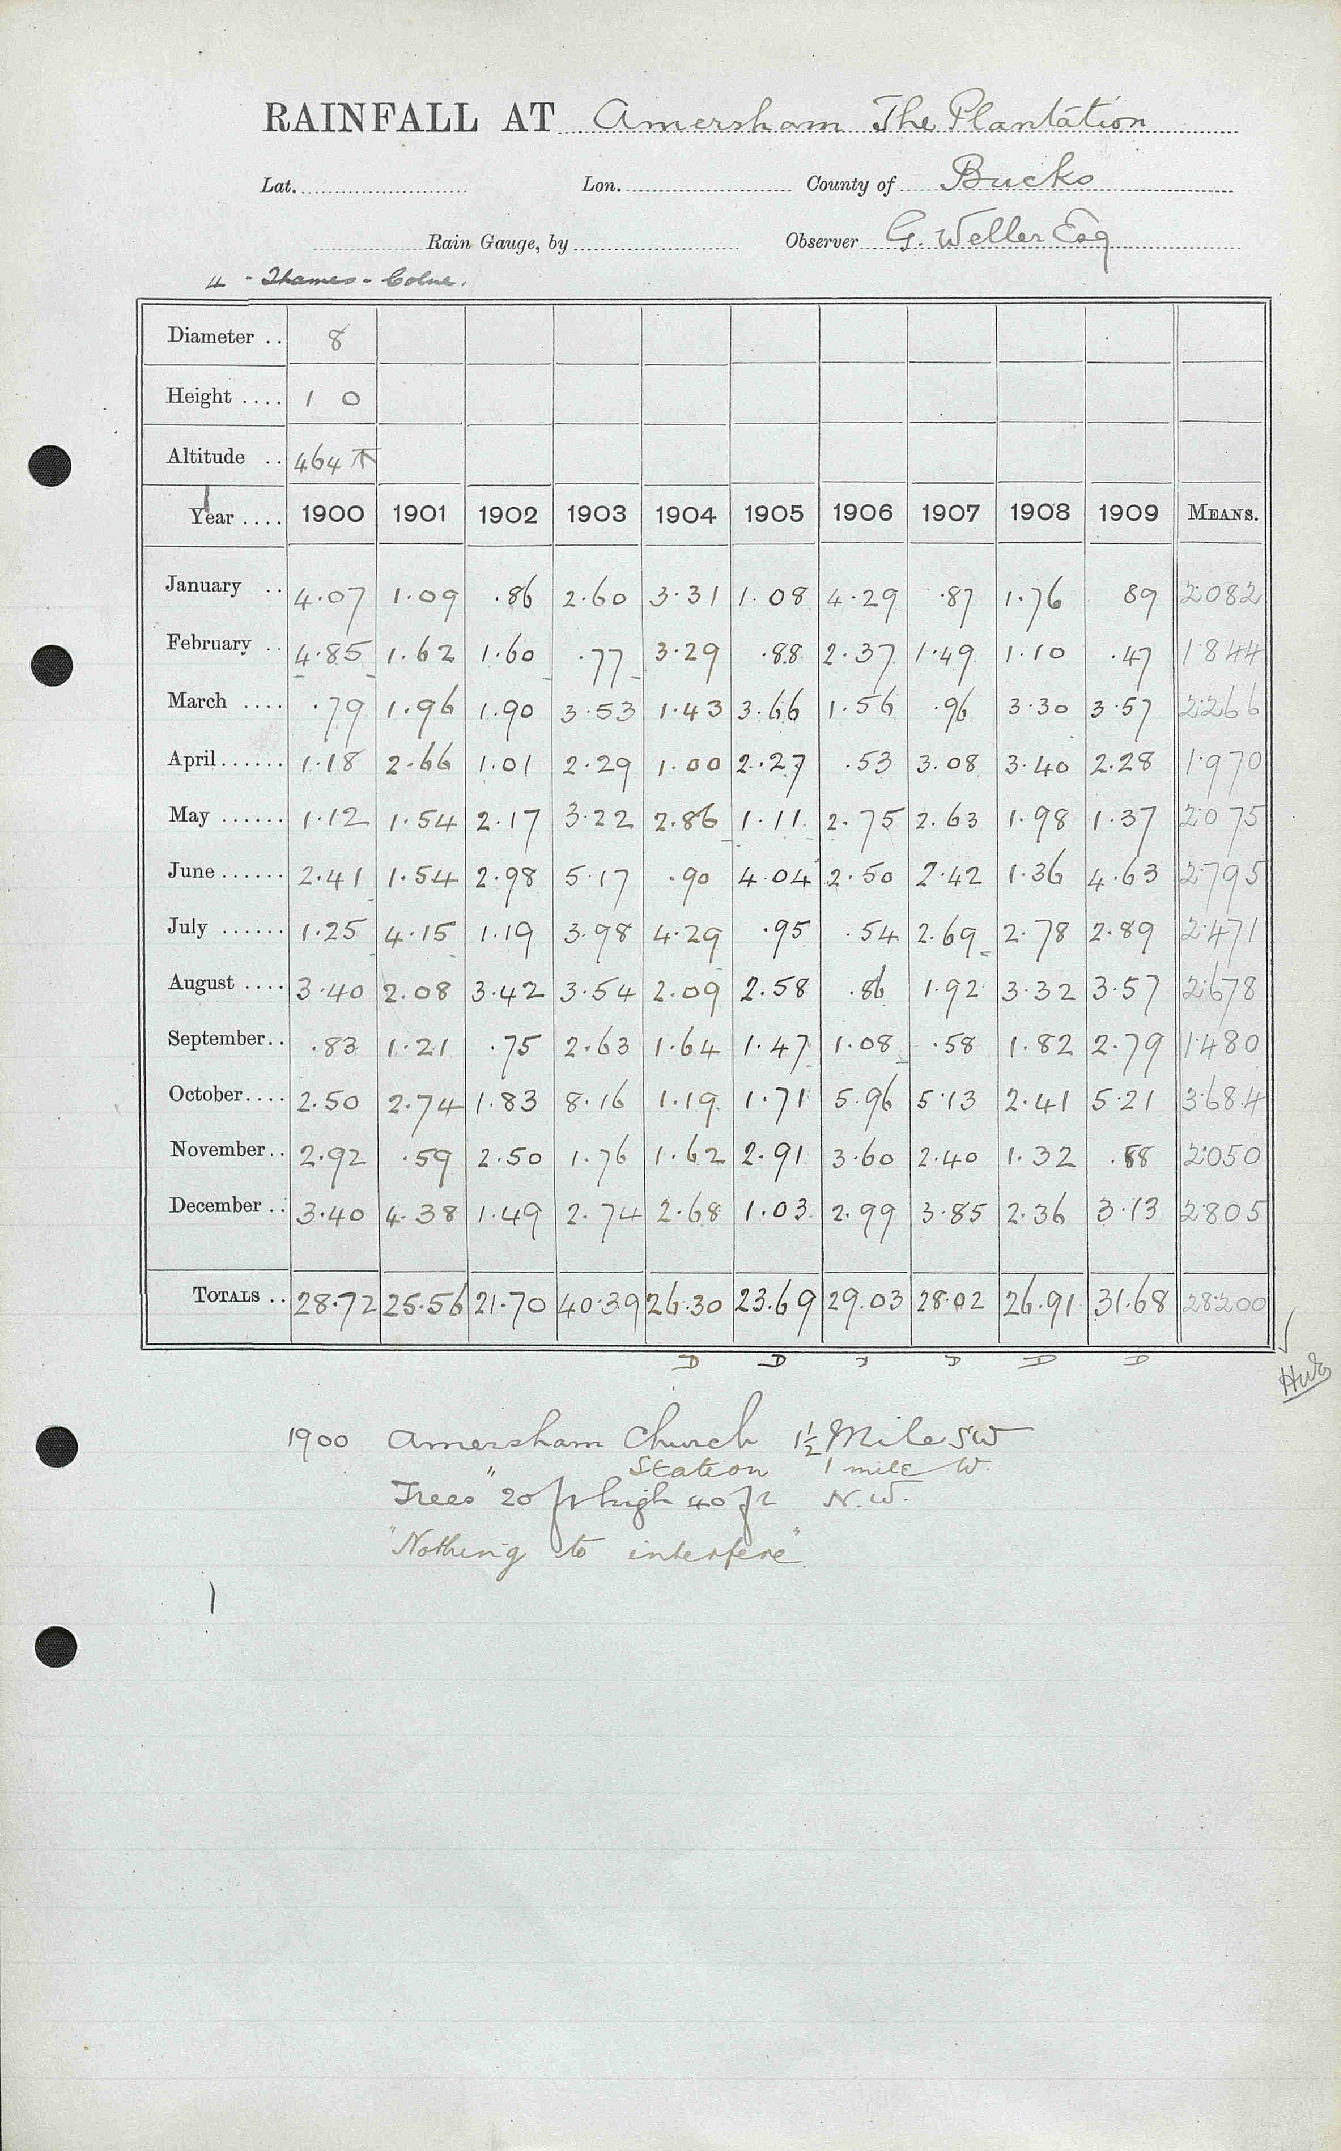 RAINFALL AT Amersham The Plantation
Lat. Lon. County of Bucks
Rain Gauge, by Observer G. Weller Esq
4 - Thames - Colne.
Diameter .. 8
Height .... 1 0
Altitude .. 464
Year .... 1900 1901 1902 1903 1904 1905 1906 1907 1908 1909 MEANS.
January .. 4.07 1.09 .86 2.60 3.31 1.08 4.29 .87 1.76 89 2.082
February .. 4.85 1.62 1.60 .77 3.29 .88 2.37 1.49 1.10 .47 1.844
March .... .79 1.96 1.90 3.53 1.43 3.66 1.56 .96 3.30 3.57 2.266
April ...... 1.18 2.66 1.01 2.29 1.00 2.27 .53 3.08 3.40 2.28 1.970
May ...... 1.12 1.54 2.17 3.22 2.86 1.11 2.75 2.63 1.98 1.37 2.075
June ...... 2.41 1.54 2.98 5.17 .90 4.04 2.50 2.42 1.36 4.63 2.795
July ...... 1.25 4.15 1.19 3.98 4.29 .95 .54 2.69 2.78 2.89 2.471
August .... 3.40 2.08 3.42 3.54 2.09 2.58 .86 1.92 3.32 3.57 2.678
September.. .83 1.21 .75 2.63 1.64 1.47 1.08 .58 1.82 2.79 1.480
October.... 2.50 2.74 1.83 8.16 1.19 1.71 5.96 5.13 2.41 5.21 3.684
November.. 2.92 .59 2.50 1.76 1.62 2.91 3.60 2.40 1.32 .88 2.050
December .. 3.40 4.38 1.49 2.74 2.68 1.03 2.99 3.85 2.36 3.13 2.805
TOTALS .. 28.72 25.56 21.70 40.39 26.30 23.69 29.03 28.02 26.91 31.68 28.200
D D D D D
1900 Amersham Church 1½ Mile SW
" Station 1 mile W.
Trees 20 ft high 40 ft N.W.
"Nothing to interfere"